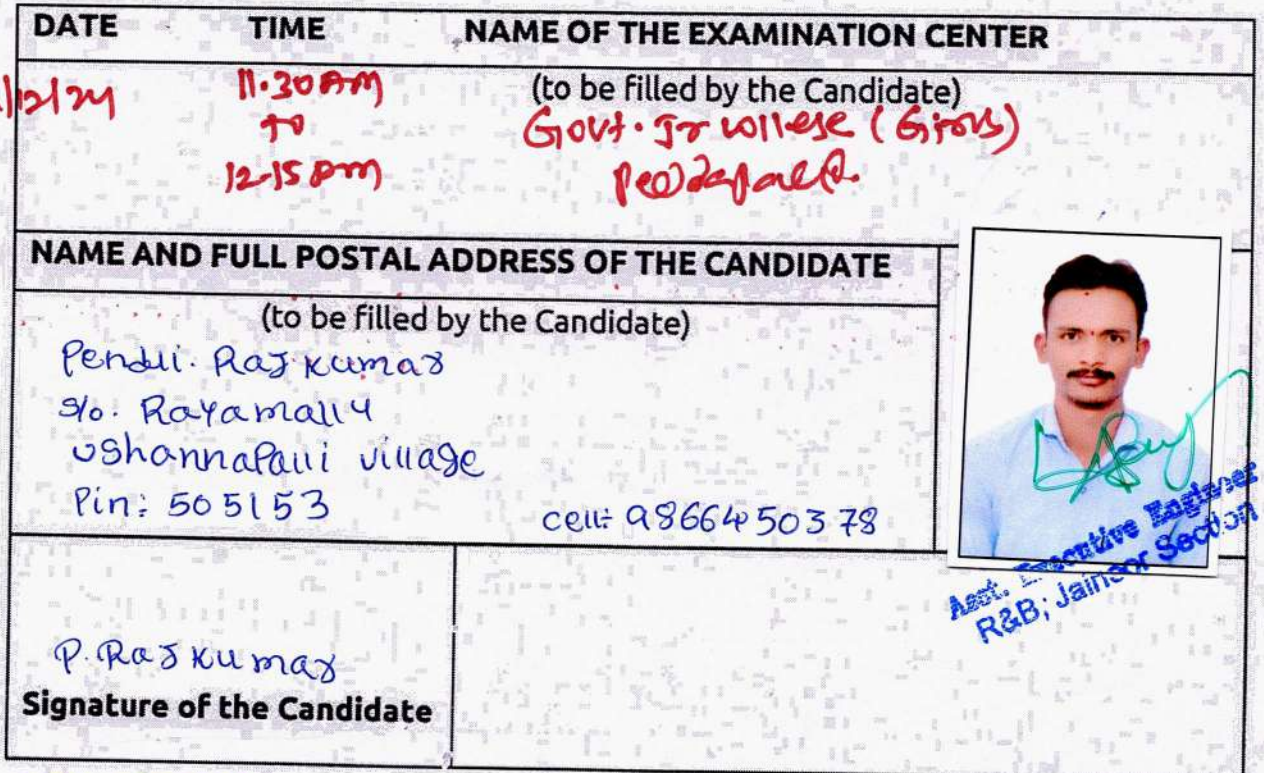 DATE TIME NAME OF THE EXAMINATION CENTER
(to be filled by the Candidate)
/12/24 11.30 AM Govt. Jr college (Girls)
to
12-15 pm
NAME AND FULL POSTAL ADDRESS OF THE CANDIDATE
(to be filled by the Candidate)
Pendli. Raj kumar
S/o. Rayamally
ushannapalli village
Pin: 505153 cell: 9866450378
Asst. Executive Engineer
R&B; Jainoor Section
P. Raj kumar
Signature of the Candidate